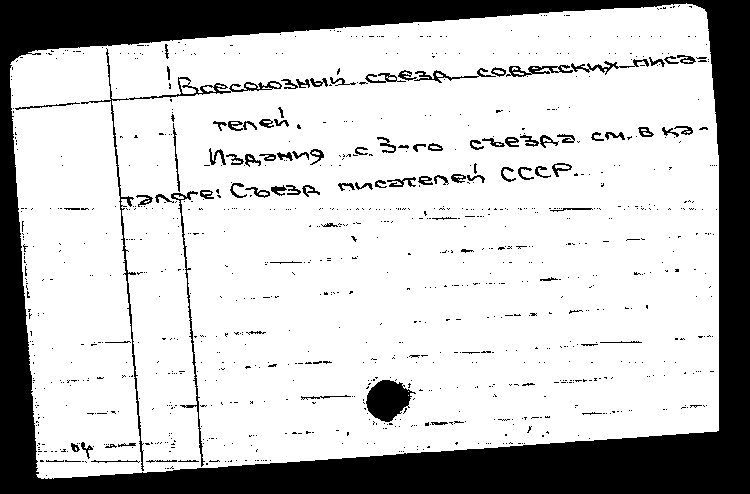 Всесоюзный съезд советских писа=
телей.
Издания с 3-го съезда см. в ка-
талоге: Съезд писателей СССР.